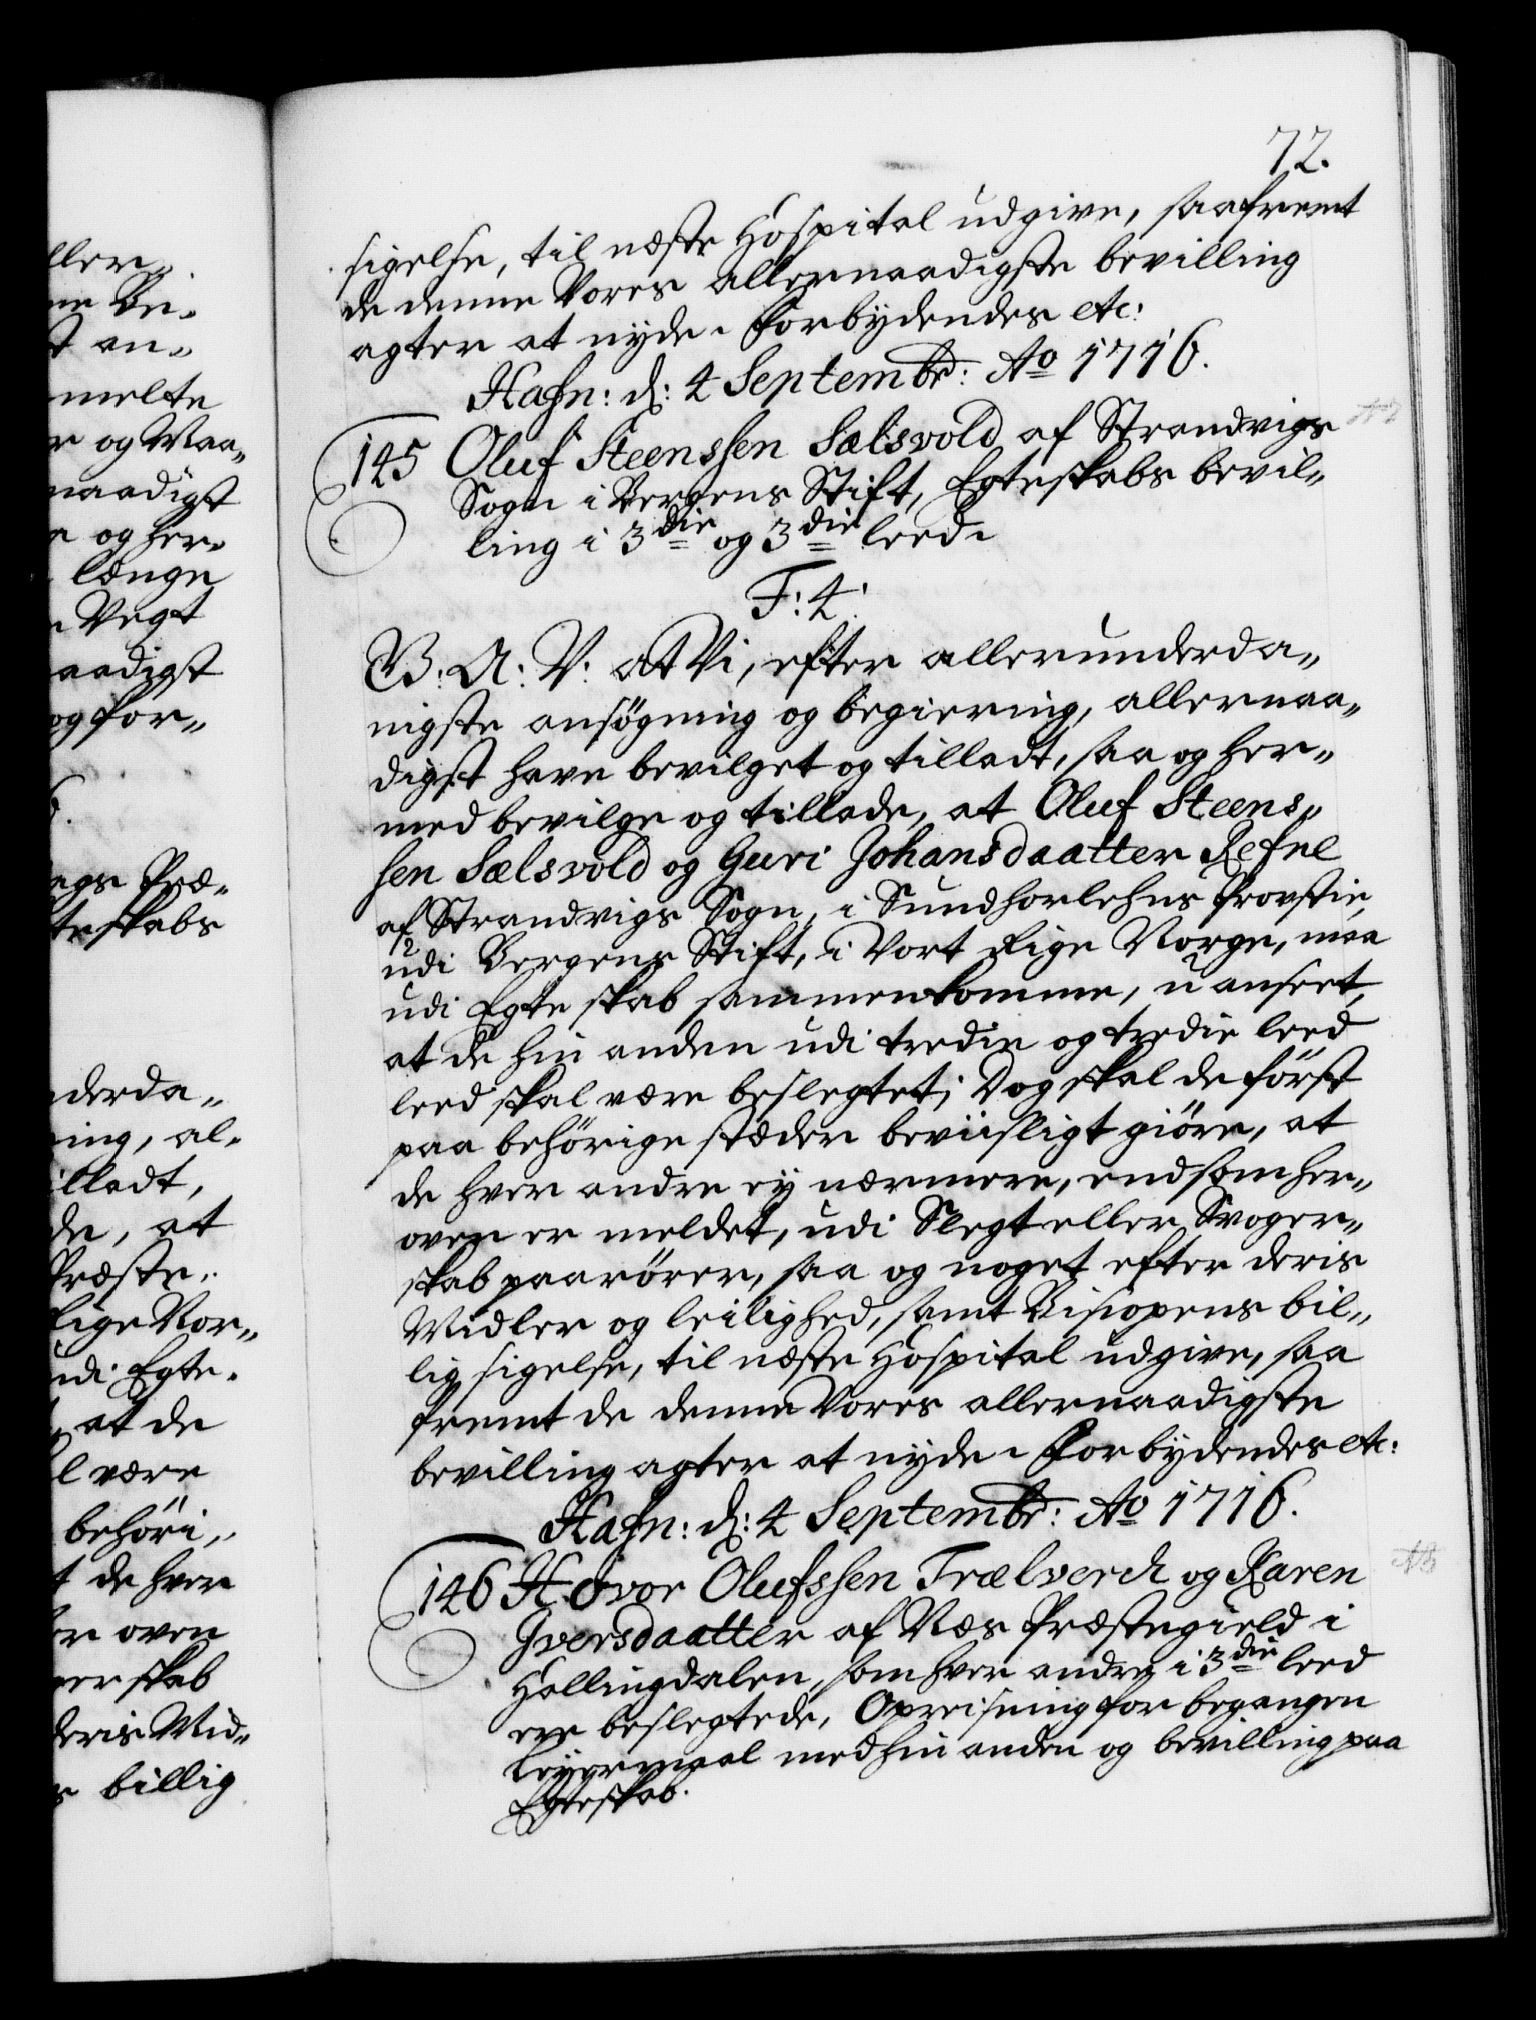 72.
sigelse, til næste Hospital udgive, saafremt
de denne Vores allernaadigste bevilling
agter at nyde. Forbydendes etc:
Hafn: d: 4 Septembr: Ao 1716.
145 Oluf Steenssen Sælsvold af Strandvigs
Sogn i Bergens Stift, Egteskabs bevil„
ling i 3die og 3die leed.
F: 4.
B: A: V: at Vi, efter allerunderda„
nigste ansøgning og begiering, allernaa„
digst have bevilget og tilladt, saa og her„
med bevilge og tillade, at Oluf Steens„
sen Sælsvold og Guri Johansdaatter Refne
af Strandvigs Sogn, i Sundhorlehns Provstie,
udi Bergens Stift, i Vort Rige Norge, maa
udi Egteskab sammenkomme, uanseet,
at de hin anden udi tredie og tredie leed
leed skal være beslegtet; Dog skal de först
paa behörige stæder beviisligt giöre, at
de hver andre ey nærmere, end som her„
oven er meldet, udi Slegt eller Svoger„
skab paarörer, saa og noget efter deris
Midler og leilighed, samt Bispens bil„
lig sigelse, til næste Hospital udgive, saa
fremt de denne Vores allernaadigste
bevilling agter at nyde. Forbydendes etc:
Hafn: d: 4 Septembr: Ao 1716.
146 Hovor Olufssen Trælverch og Karen
Iversdaatter af Næs Præstegield i
Hallingdalen, som hver andre i 3die leed
ere beslegtede, Opreisning for begangen
Leyermaal med hin anden og bevilling paa
Egteskab.
ller„
ne Be„
t an„
melte
r og Maa„
naadigst
e og her„
længe
Vegt
aadigst
og for„
6.
ngs Præ„
teskabs
nderda„
ing, al„
illadt,
de, at
Præste„
lige Nor„
udi Egte„
at de
l være
behöri„
t de hver
er oven
gerskab
deris Mid„
s billig